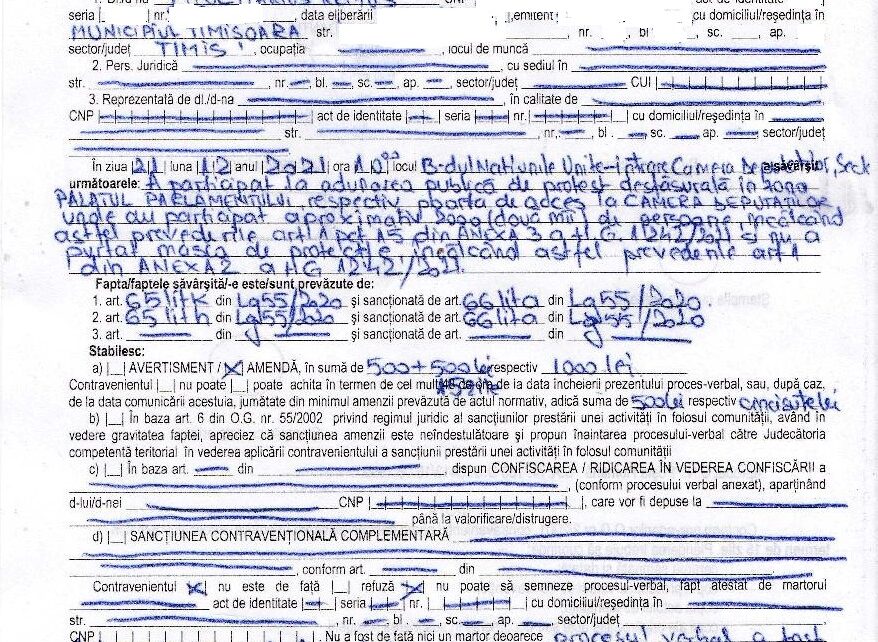 seria |_ nr. , data eliberării , emitent , cu domiciliul/reşedinţa în
MUNICIPIUL TIMISOARA str. , nr. , bl , sc. , ap.
sector/judeţ TIMIS , ocupaţia , locul de muncă
2. Pers. Juridică , cu sediul în
str. , nr. , bl. , sc. , ap. , sector/judeţ CUI
3. Reprezentată de dl./d-na , în calitate de
CNP act de identitate seria nr. cu domiciliul/reşedinţa în
str. , nr. , bl . , sc. ap. sector/judeţ
În ziua 21 luna 12 anul 2021 ora 10⁰⁰ locul B-dul Natiunile Unite-intrare Camera săvârşit
următoarele: A participat la adunarea publică de protest desfăsurată în zona
PALATUL PARLAMENTULUI, respectiv poarta de acces la CAMERA DEPUTATILOR
unde au participat aproximativ 2000 (două mii) de persoane, încălcând
astfel prevederile art 1 pct A5 din ANEXA 3 a H.G. 1242/2021 si nu a
purtat masca de protectie, încălcând astfel prevederile art 1
din ANEXA 2 a HG 1242/2021.
Fapta/faptele săvârşită/-e este/sunt prevăzute de:
1. art. 65 lit k din Lg 55/2020 şi sancţionată de art. 66 lit a din Lg 55/2020
2. art. 65 lit h din Lg 55/2020 şi sancţionată de art. 66 lit a din Lg 55/2020
3. art. din şi sancţionată de art. din
Stabilesc:
a) |_| AVERTISMENT / |X| AMENDĂ, în sumă de 500+500 lei respectiv 1000 lei
Contravenientul |_| nu poate |_| poate achita în termen de cel mult de la data încheierii prezentului proces-verbal, sau, după caz,
de la data comunicării acestuia, jumătate din minimul amenzii prevăzute de actul normativ, adică suma de 500 lei respectiv cincisutelei
b) |_| În baza art. 6 din O.G. nr. 55/2002 privind regimul juridic al sancţiunilor prestării unei activităţi în folosul comunităţii, având în
vedere gravitatea faptei, apreciez că sancţiunea amenzii este neîndestulătoare şi propun înaintarea procesului-verbal către Judecătoria
competentă teritorial în vederea aplicării contravenientului a sancţiunii prestării unei activităţi în folosul comunităţii
c) |_| În baza art. din , dispun CONFISCAREA / RIDICAREA ÎN VEDEREA CONFISCĂRII a
, (conform procesului verbal anexat), aparţinând
d-lui/d-nei CNP , care vor fi depuse la
până la valorificare/distrugere.
d) |_| SANCŢIUNEA CONTRAVENŢIONALĂ COMPLEMENTARĂ
, conform art. din
Contravenientul |X| nu este de faţă |_| refuză |X| nu poate să semneze procesul-verbal, fapt atestat de martorul
act de identitate seria nr. cu domiciliul/reşedinţa în
str. , nr. , bl . , sc. , ap. , sector/judeţ
CNP . Nu a fost de faţă nici un martor deoarece procesul verbal a fost